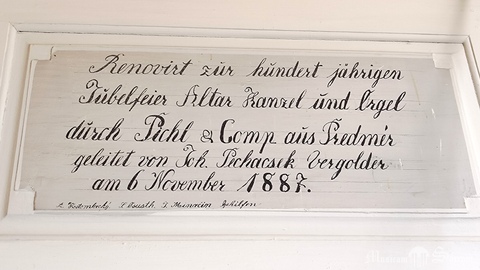 Renovirt zur hundert jährigen
Jubelfeier Altar Kanzel und Orgel
durch Pichl & Comp aus Predmér
geleitet von Joh. Prchacsek Vergolder
am 6 November 1887.
Gehilfen